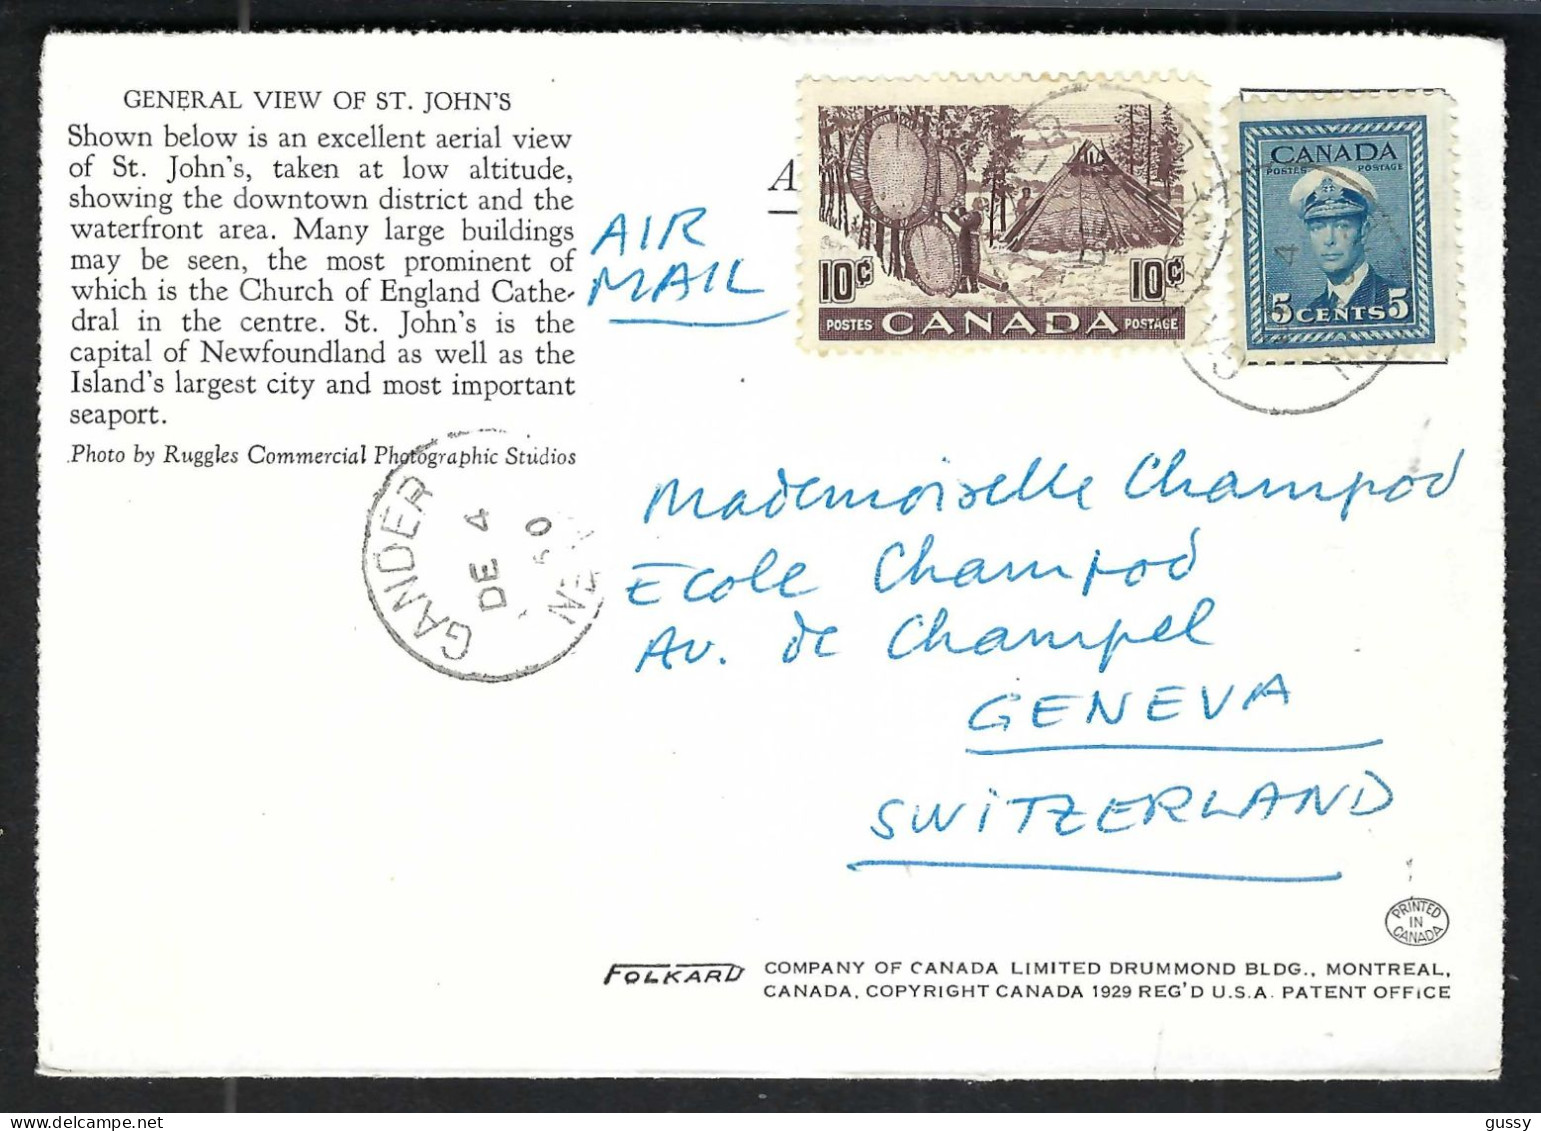 GENERAL VIEW OF ST. JOHN'S
Shown below is an excellent aerial view
of St. John's, taken at low altitude,
showing the downtown district and the
waterfront area. Many large buildings
may be seen, the most prominent of
which is the Church of England Cathe-
dral in the centre. St. John's is the
capital of Newfoundland as well as the
Island's largest city and most important
seaport.
Photo by Ruggles Commercial Photographic Studios
AIR
MAIL
A
10¢ 10¢
POSTES CANADA POSTAGE
CANADA
POSTES POSTAGE
5 CENTS 5
GANDER
DE 4
50
Mademoiselle Champod
Ecole Champod
Av. de Champel
GENEVA
SWITZERLAND
PRINTED
IN
CANADA
FOLKARD COMPANY OF CANADA LIMITED DRUMMOND BLDG., MONTREAL,
CANADA, COPYRIGHT CANADA 1929 REG'D U.S.A. PATENT OFFICE
gussy